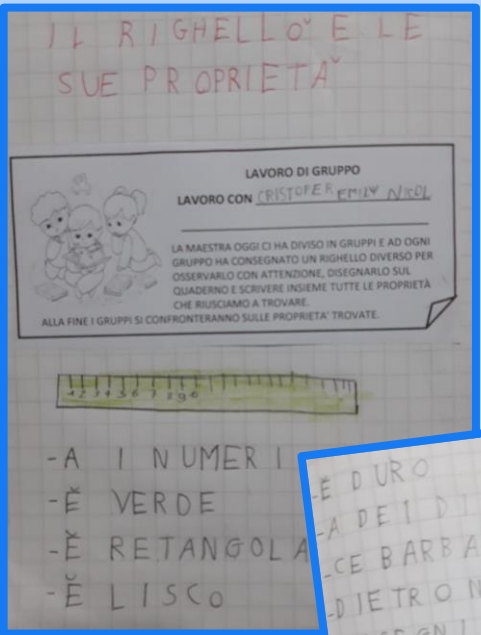 IL RIGHELLO E LE
SUE PROPRIETA
LAVORO DI GRUPPO
LAVORO CON CRISTOFER EMILY NICOL
LA MAESTRA OGGI CI HA DIVISO IN GRUPPI E AD OGNI
GRUPPO HA CONSEGNATO UN RIGHELLO DIVERSO PER
OSSERVARLO CON ATTENZIONE, DISEGNARLO SUL
QUADERNO E SCRIVERE INSIEME TUTTE LE PROPRIETÀ
CHE RIUSCIAMO A TROVARE.
ALLA FINE I GRUPPI SI CONFRONTERANNO SULLE PROPRIETA' TROVATE.
1 2 3 4 5 6 7 8 9
-A I NUMERI
-È VERDE
-È RETANGOLA
-È LISCO
-È DURO
-A DEI DI
-CE BARBA
-DIETRO N